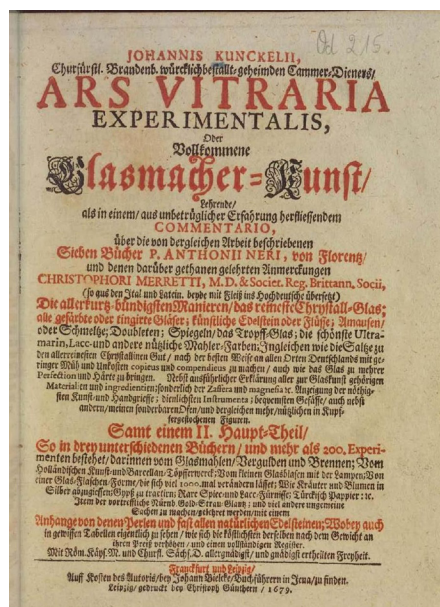 Od 215.
JOHANNIS KUNCKELII,
Churfürstl. Brandenb. würcklichbestallt-geheimden Cammer-Dieners/
ARS VITRARIA
EXPERIMENTALIS,
Oder
Vollkommene
Glasmacher-Kunst/
Lehrende/
als in einem/ aus unbetrüglicher Erfahrung herfliessendem
COMMENTARIO,
über die von dergleichen Arbeit beschriebenen
Sieben Bücher P. ANTHONII NERI, von Florentz/
und denen darüber gethanen gelehrten Anmerckungen
CHRISTOPHORI MERRETTI, M.D. & Societ. Reg. Brittann. Socii,
(so aus den Ital und Latein. beyde mit Fleiß ins Hochdeutsche übersetzt)
Die allerkurtz-bündigsten Manieren/ das reineste Chrystall-Glas;
alle gefärbte oder tingirte Gläser; künstliche Edelstein oder Flüsse; Amausen/
oder Schmeltze; Doubleten; Spiegeln/ das Tropff-Glas; die schönste Ultra-
marin, Lacc- und andere nützliche Mahler-Farben; Ingleichen wie die Saltze zu
den allerreinesten Chrystallinen Gut / nach der besten Weise an allen Orten Deutschlands mit ge-
ringer Müh und Unkosten copieus und compendieus zu machen / auch wie das Glas zu mehrer
Perfection und Härte zu bringen. Nebst ausführlicher Erklärung aller zur Glaskunst gehörigen
Materialien und ingredientien; sonderlich der Zaffera und magnesia &c. Anzeigung der nöthig-
sten Kunst- und Handgriffe; dienlichsten Instrumenta; bequemsten Gefässe/ auch nebst
andern/ meinen sonderbaren Öfen/ und dergleichen mehr/ nützlichen in Kupf-
fer gestochenen Figuren.
Samt einem II. Haupt-Theil/
So in drey unterschiedenen Büchern / und mehr als 200. Experi-
menten bestehet/ darinnen vom Glasmahlen/ Vergulden und Brennen; Vom
Holländischen Kunst- und Barcellan-Töpfferwerck; Vom kleinen Glasblasen mit der Lampen; Von
einer Glas-Flaschen-Forme/ die sich viel 1000. mal verändern lässet; Wie Kräuter und Blumen in
Silber abzugiessen; Gypß zu tractiren; Rare Spicc- und Lacc-Fürnisse; Türckisch Pappier &c.
Item der vortreffliche Nürnb. Gold-Strau-Glantz; und viel andere ungemeine
Sachen zu machen/ gelehret werden/ mit einem
Anhange von denen Perlen und fast allen natürlichen Edelsteinen; Wobey auch
in gewissen Tabellen eigentlich zu sehen / wie sich die köstlichsten derselben nach dem Gewicht an
ihren Preiß verhöhen / und einem vollständigen Register.
Mit Röm. Käys. M. und Churfl. Sächs. D. allergnädigst/ und gnädigst ertheilten Freyheit.
Franckfurt und Leipzig/
Auff Kosten des Autoris/ bey Johann Bielcke/ Buchführern in Jena/ zu finden.
Leipzig/ gedruckt bey Christoph Günthern / 1679.